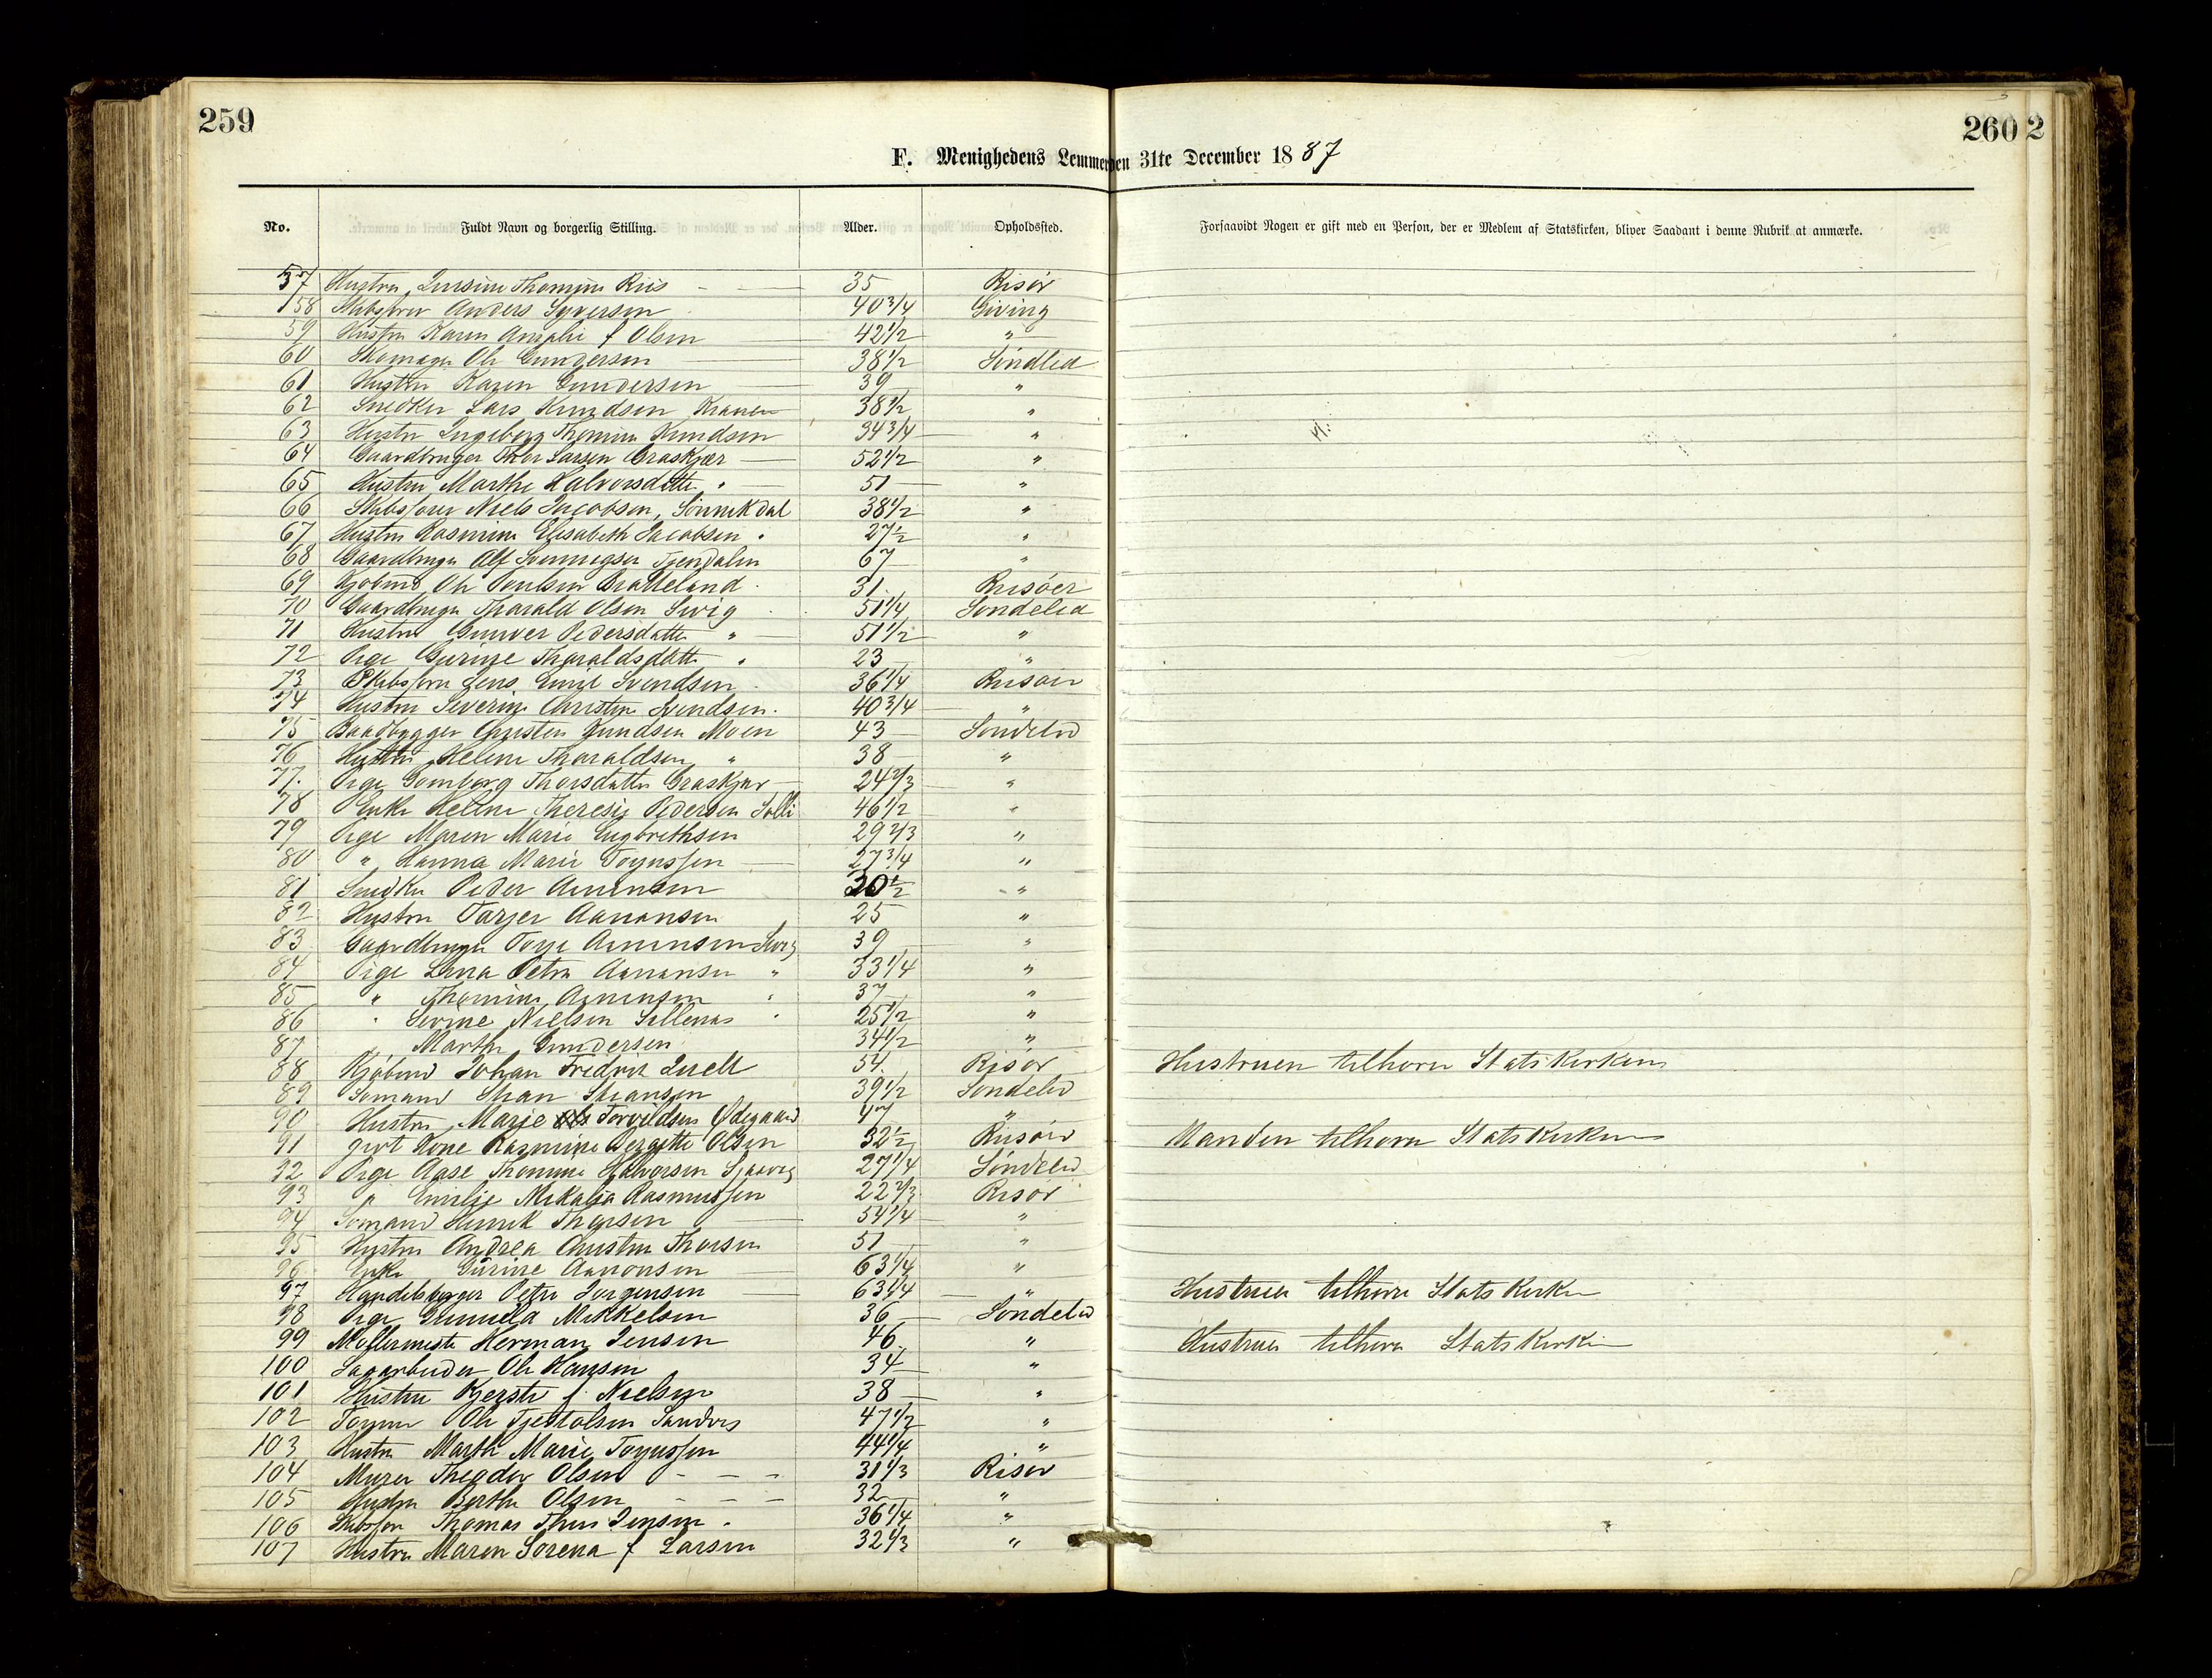 259
260 2
F. Menighedens Lemmer den 31te December 1887
No. Fuldt Navn og borgerlig Stilling. Alder. Opholdssted. Forsaavidt Nogen er gift med en Person, der er Medlem af Statskirken, bliver Saadant i denne Rubrik at anmærke.
57 Hustru Thomine Riis 35 Risör
58 Skibsförer Anders Syversen 40 3/4 Giving
59 Hustru Karen Amalie f Olsen 42 1/2 "
60 Skomager Ole Gundersen 38 1/2 Söndled
61 Hustru Karen Gundersen 39 "
62 Snedker Lars Knudsen 38 1/2 "
63 Hustru Ingeborg Thomine Knudsen 34 3/4 "
64 Gaardbruger Thor Larsen Graskjær 52 1/2 "
65 Hustru Marthe Halvorsdatter " 51 "
66 Skibsförer Niels Jacobsen, 38 1/2 "
67 Hustru Rasmine Elisabeth Jacobsen " 27 1/2 "
68 Gaardbruger Alf 67 "
69 Kjöbmd Ole Poulsen Bratteland 31 Riisöer
70 Gaardbruger Tharald Olsen Sivig 51 1/4 Söndeled
71 Hustru Gunver Pedersdatter " 51 1/2 "
72 Pige Gurine Tharaldsdatter " 23 "
73 Skibsförer Jens Emil Svendsen 36 1/4 Riisöer
74 Hustru Severine Christine Svendsen 40 3/4 "
75 Baadbygger Christen Knudsen Moen 43 Söndeled
76 Hustru Helene Tharaldsen " 38 "
77 Pige Gomborg Thorsdatter Graskjær 24 2/3 "
78 Enke Helene Theresie Pedersen 46 1/2 "
79 Pige Maren Marie Engbrethsen 29 2/3 "
80 " Hanna Marie Tognssen 27 3/4 "
81 Snedker Peder Aanonsen 30 1/2 "
82 Hustru Tarjer Aanonsen 25 "
83 Gaardbruger Terje Aanonsen Sivig 39 "
84 Pige Lena Petra Aanonsen " 33 1/4 "
85 " Thomine Aanonsen " 37 "
86 " Sevrine Nielsen 25 1/2 "
87 Marthe Gundersen 34 1/2 "
88 Kjöbmd Johan Fredrik 54 Risör Hustruen tilhörer Statskirken
89 Sömand Stian Stiansen 39 1/2 Söndeled
90 Hustru Marie Torvildsen Ödegaard 47 "
91 givt Kone Rasmine Bergitte Olsen 32 1/2 Riisöer Manden tilhörer Statskirken
92 Pige Aase Thomine Halvorsen 27 1/4 Söndeled
93 " Emilie Mikalia Rasmussen 22 2/3 Risör
94 Sömand Henrik Thorsen 54 1/4 "
95 Hustru Andrea Christine Thorsen 51 "
96 Enke Gurine Aanonsen 63 1/4 "
97 Handelsborger Peter Jörgensen 63 1/4 " Hustruen tilhörer Statskirken
98 Pige Gunnila Mikkelsen 36 Söndeled
99 Möllermester Herman Jensen 46 " Hustruen tilhörer Statskirken
100 Sagarbeider Ole Hansen 34 "
101 Hustru Kjerste f. Nielsen 38 "
102 Ole 47 1/2 "
103 Hustru Marthe Marie Tognssen 44 1/4 "
104 Murer Theodor Olsen 31 1/3 Risör
105 Hustru Berthe Olsen 32 "
106 Skibsför Thomas Jensen 36 1/4 "
107 Hustru Maren Sorena f Larsen 32 1/3 "